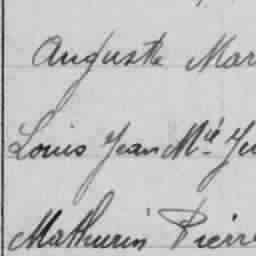 Auguste Mar
Louis Jean Mie Ju
Mathurin Pierr